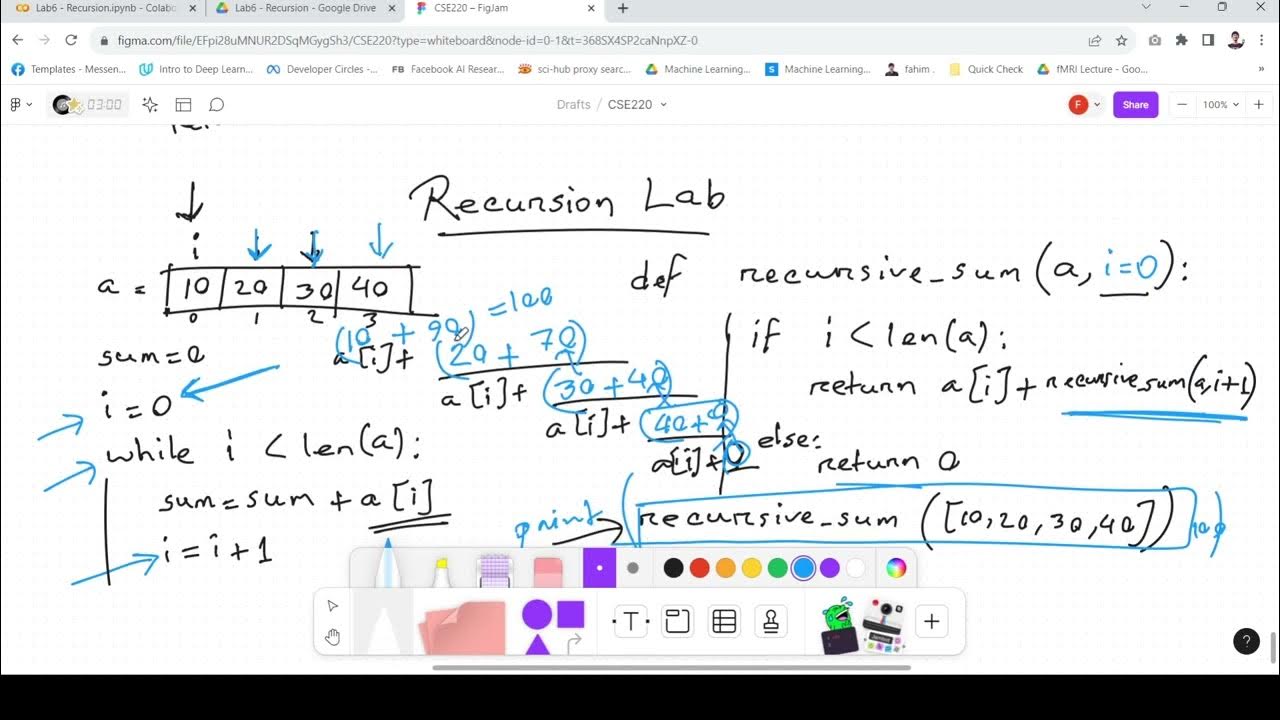 Lab6 - Recursion.ipynb - Colabo
Lab6 - Recursion - Google Drive
CSE220 – FigJam
figma.com/file/EFpi28uMNUR2DSqMGygSh3/CSE220?type=whiteboard&node-id=0-1&t=368SX4SP2caNnpXZ-0
Templates - Messen...
Intro to Deep Learn...
Developer Circles -...
FB Facebook AI Resear...
sci-hub proxy searc...
Machine Learning...
Machine Learning...
fahim .
Quick Check
fMRI Lecture - Goo...
03:00
Drafts / CSE220
F
Share
100%
Recursion Lab
i
a = 10 20 30 40
0 1 2 3
sum=0
i=0
while i < len(a):
sum=sum + a[i]
i=i+1
(10 + 90) =100
a[i]+ (20 + 70)
a[i]+ (30+40)
a[i]+ (40+0)
a[i]+0
def recursive_sum(a, i=0):
if i < len(a):
return a[i]+recursive_sum(a,i+1)
else:
return 0
print (recursive_sum ([10,20,30,40]))
T
?